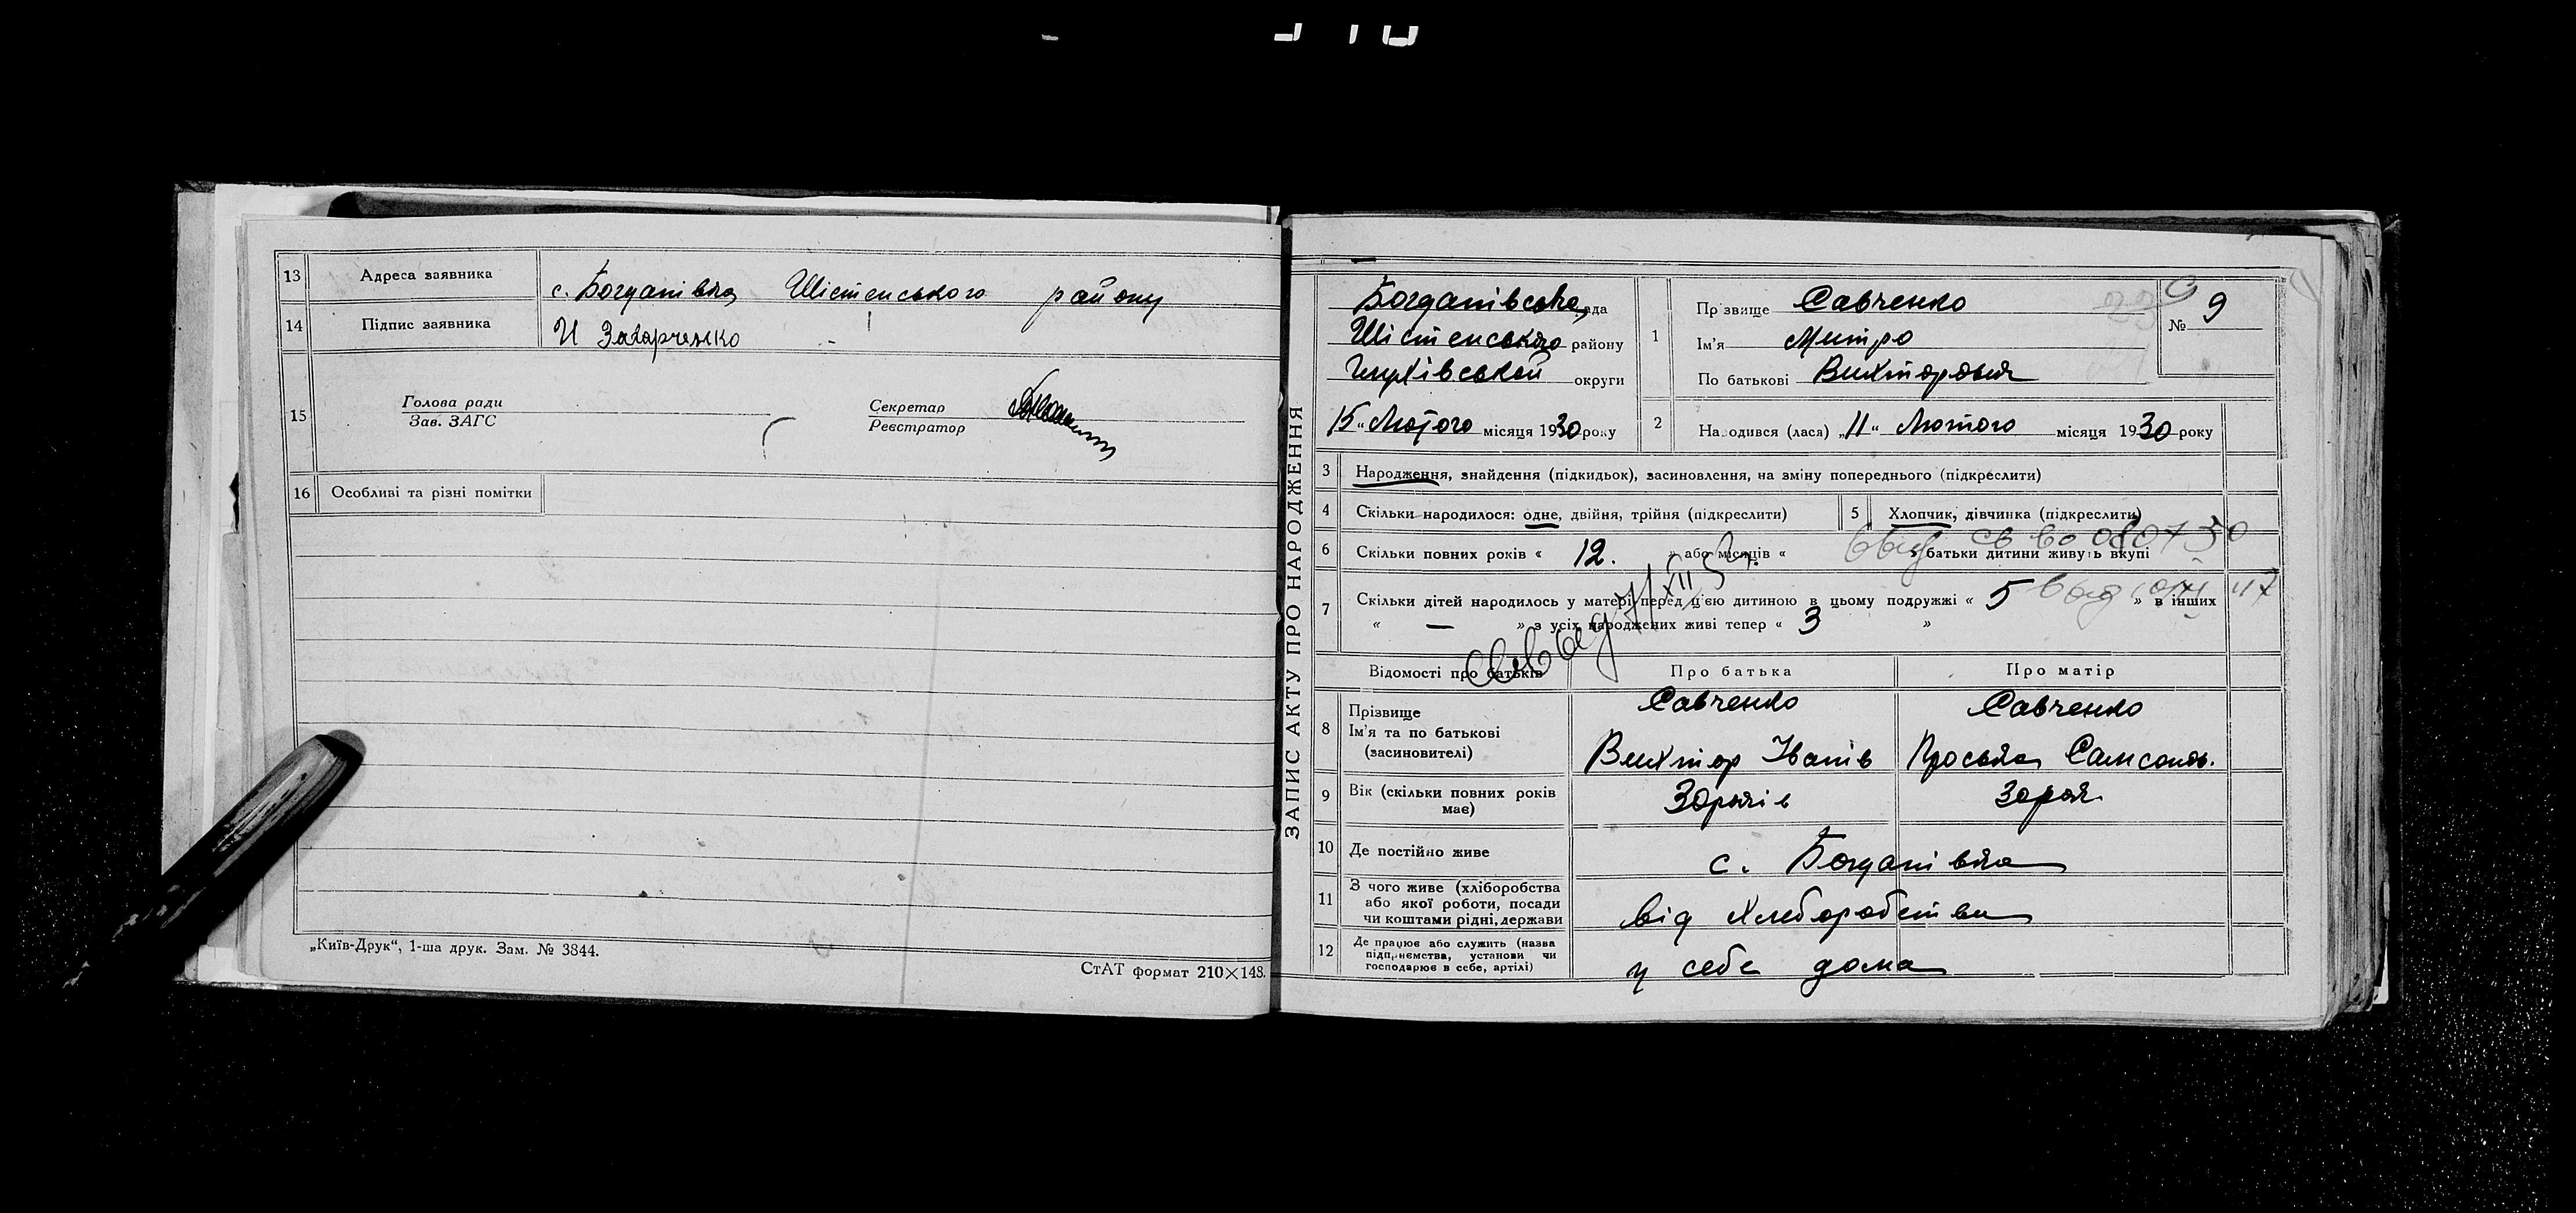 13 Адреса заявника с. Богданівка Шістенського району
14 Підпис заявника И Захарченко
15 Голова ради
Зав. ЗАГС
Секретар
Реєстратор
16 Особливі та різні помітки
„Київ-Друк“, 1-ша друк. Зам. № 3844.
СтАТ формат 210×148.
ЗАПИС АКТУ ПРО НАРОДЖЕННЯ
Богданівська рада
Шістенського району
округи
15 „ Лютого місяця 1930 року
1 Прізвище Савченко
Ім'я Митро
По батькові Вихторович
№ 9
2 Народився (лася) „11“ Лютого місяця 1930 року
3 Народження, знайдення (підкидьок), засиновлення, на зміну попереднього (підкреслити)
4 Скільки народилося: одне, двійня, трійня (підкреслити)
5 Хлопчик, дівчинка (підкреслити)
6 Скільки повних років « 12. » або місяців « » батьки дитини живуть вкупі
7 Скільки дітей народилось у матері перед цією дитиною в цьому подружжі « 5 » в інших
« — » з усіх народжених живі тепер « 3 »
Відомості про батьків Про батька Про матір
8 Прізвище
Ім'я та по батькові
(засиновителі)
Савченко Савченко
Вихтор Іванів Проська Самсонов.
9 Вік (скільки повних років
має)
10 Де постійно живе с. Богданівка
11 З чого живе (хліборобства
або якої роботи, посади
чи коштами рідні, держави
від хлеборобства
12 Де працює або служить (назва
підприємства, установи чи
господарює в себе, артілі)
у себе дома